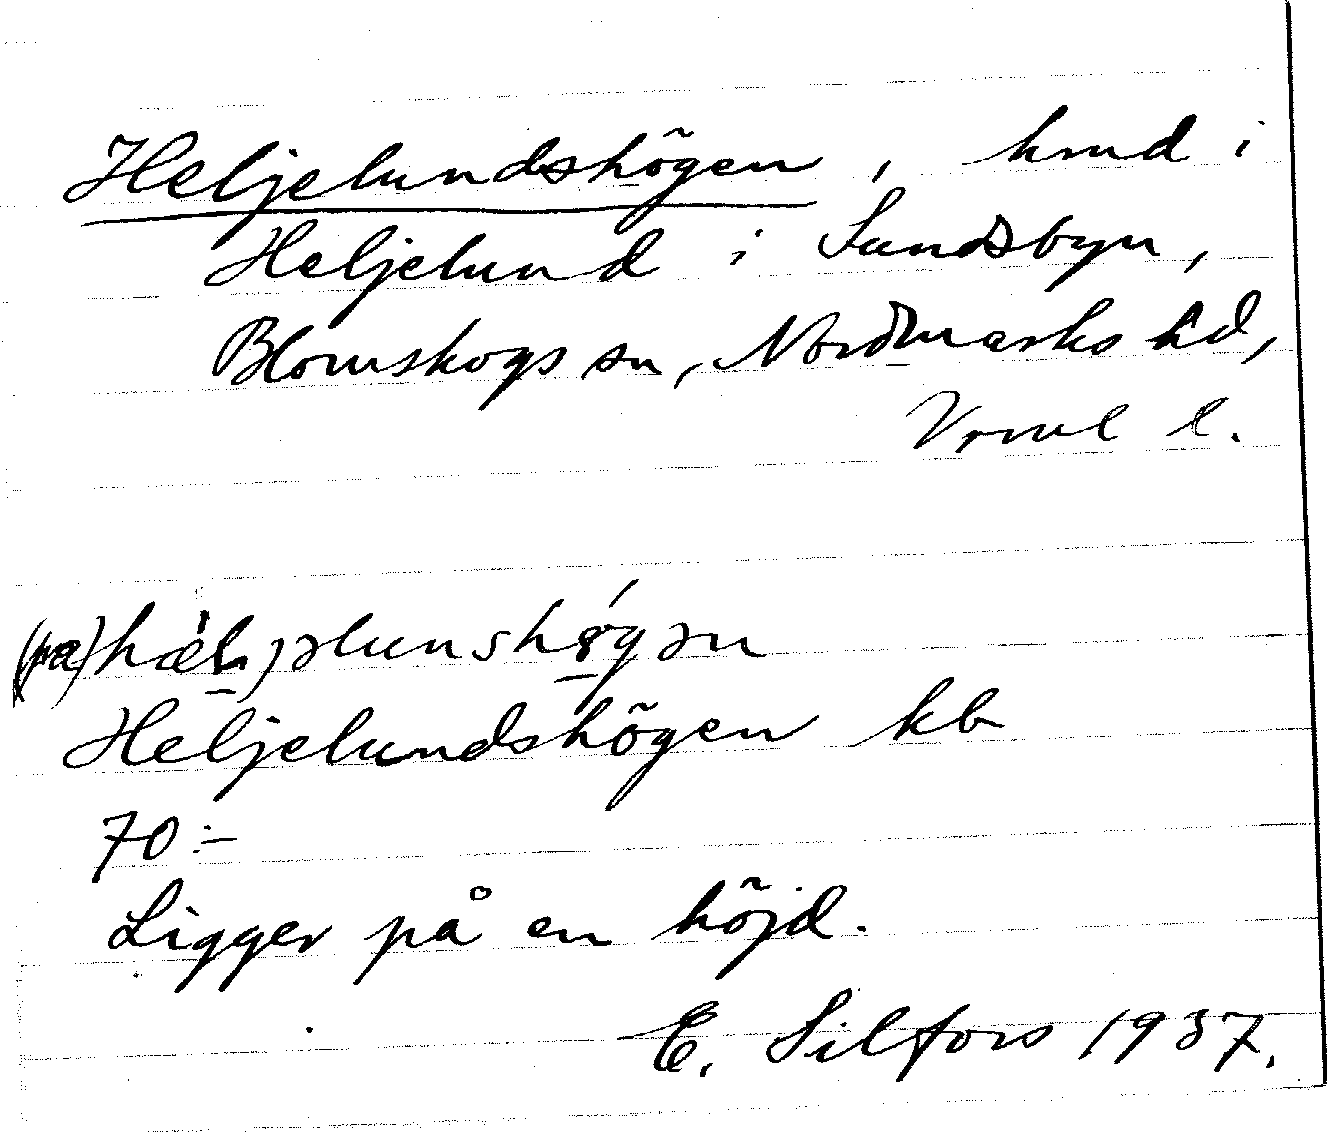 Heljelundshögen, hmd i
Heljelund i Sundsbyn,
Blomskogs sn, Nordmarks hd,
Vrml l.
(pæ)
Heljelundshögen kb
70:-
Ligger på en höjd.
E. Silfors 1937.